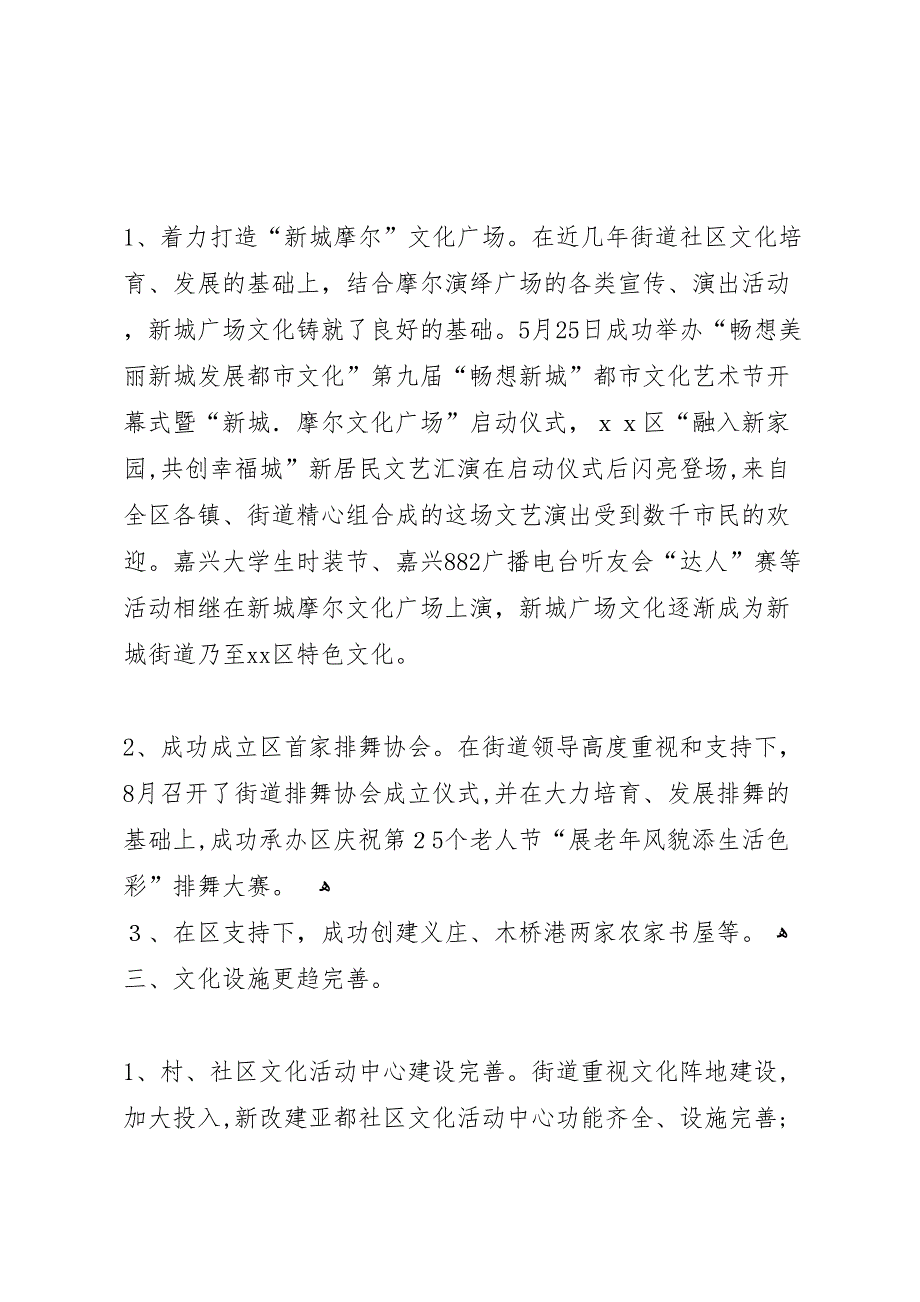 1、着力打造“新城摩尔”文化广场。在近几年街道社区文化培
育、发展的基础上，结合摩尔演绎广场的各类宣传、演出活动
，新城广场文化铸就了良好的基础。5月25日成功举办“畅想美
丽新城发展都市文化”第九届“畅想新城”都市文化艺术节开
幕式暨“新城．摩尔文化广场”启动仪式，ｘｘ区“融入新家
园,共创幸福城”新居民文艺汇演在启动仪式后闪亮登场,来自
全区各镇、街道精心组合成的这场文艺演出受到数千市民的欢
迎。嘉兴大学生时装节、嘉兴882广播电台听友会“达人”赛等
活动相继在新城摩尔文化广场上演，新城广场文化逐渐成为新
城街道乃至xx区特色文化。
2、成功成立区首家排舞协会。在街道领导高度重视和支持下，
8月召开了街道排舞协会成立仪式,并在大力培育、发展排舞的
基础上,成功承办区庆祝第２5个老人节“展老年风貌添生活色
彩”排舞大赛。 ﻫ
３、在区支持下，成功创建义庄、木桥港两家农家书屋等。 ﻫ
三、文化设施更趋完善。
1、村、社区文化活动中心建设完善。街道重视文化阵地建设,
加大投入,新改建亚都社区文化活动中心功能齐全、设施完善;